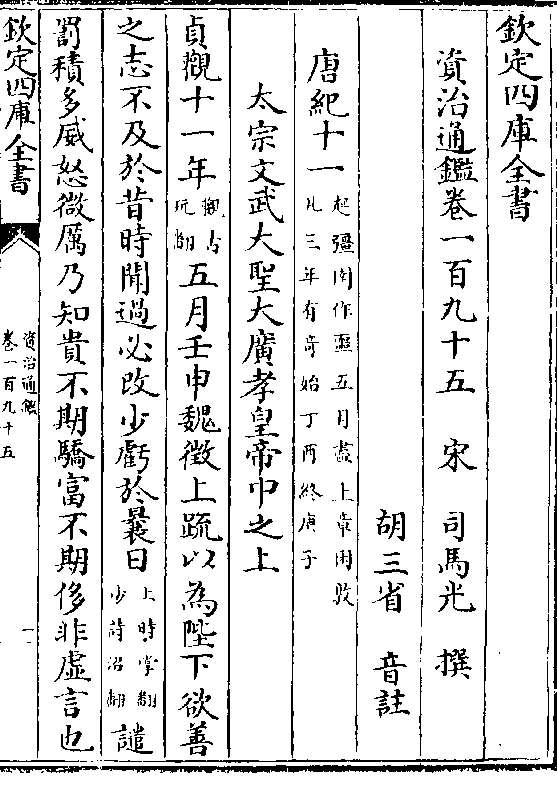 欽定四庫全書
資治通鑑卷一百九十五　宋　司馬光　撰
胡三省　音註
唐紀十一
起彊圉作噩五月盡上章困敦
凡三年有奇始丁酉終庚子
太宗文武大聖大廣孝皇帝中之上
貞觀十一年觀古玩翻五月壬申魏徵上疏以為陛下欲善
之志不及於昔時聞過必改少虧於曩日上時掌翻少詩沼翻譴
罰積多威怒微厲乃知貴不期驕富不期侈非虛言也
欽定四庫全書
資治通鑑
卷一百九十五
一